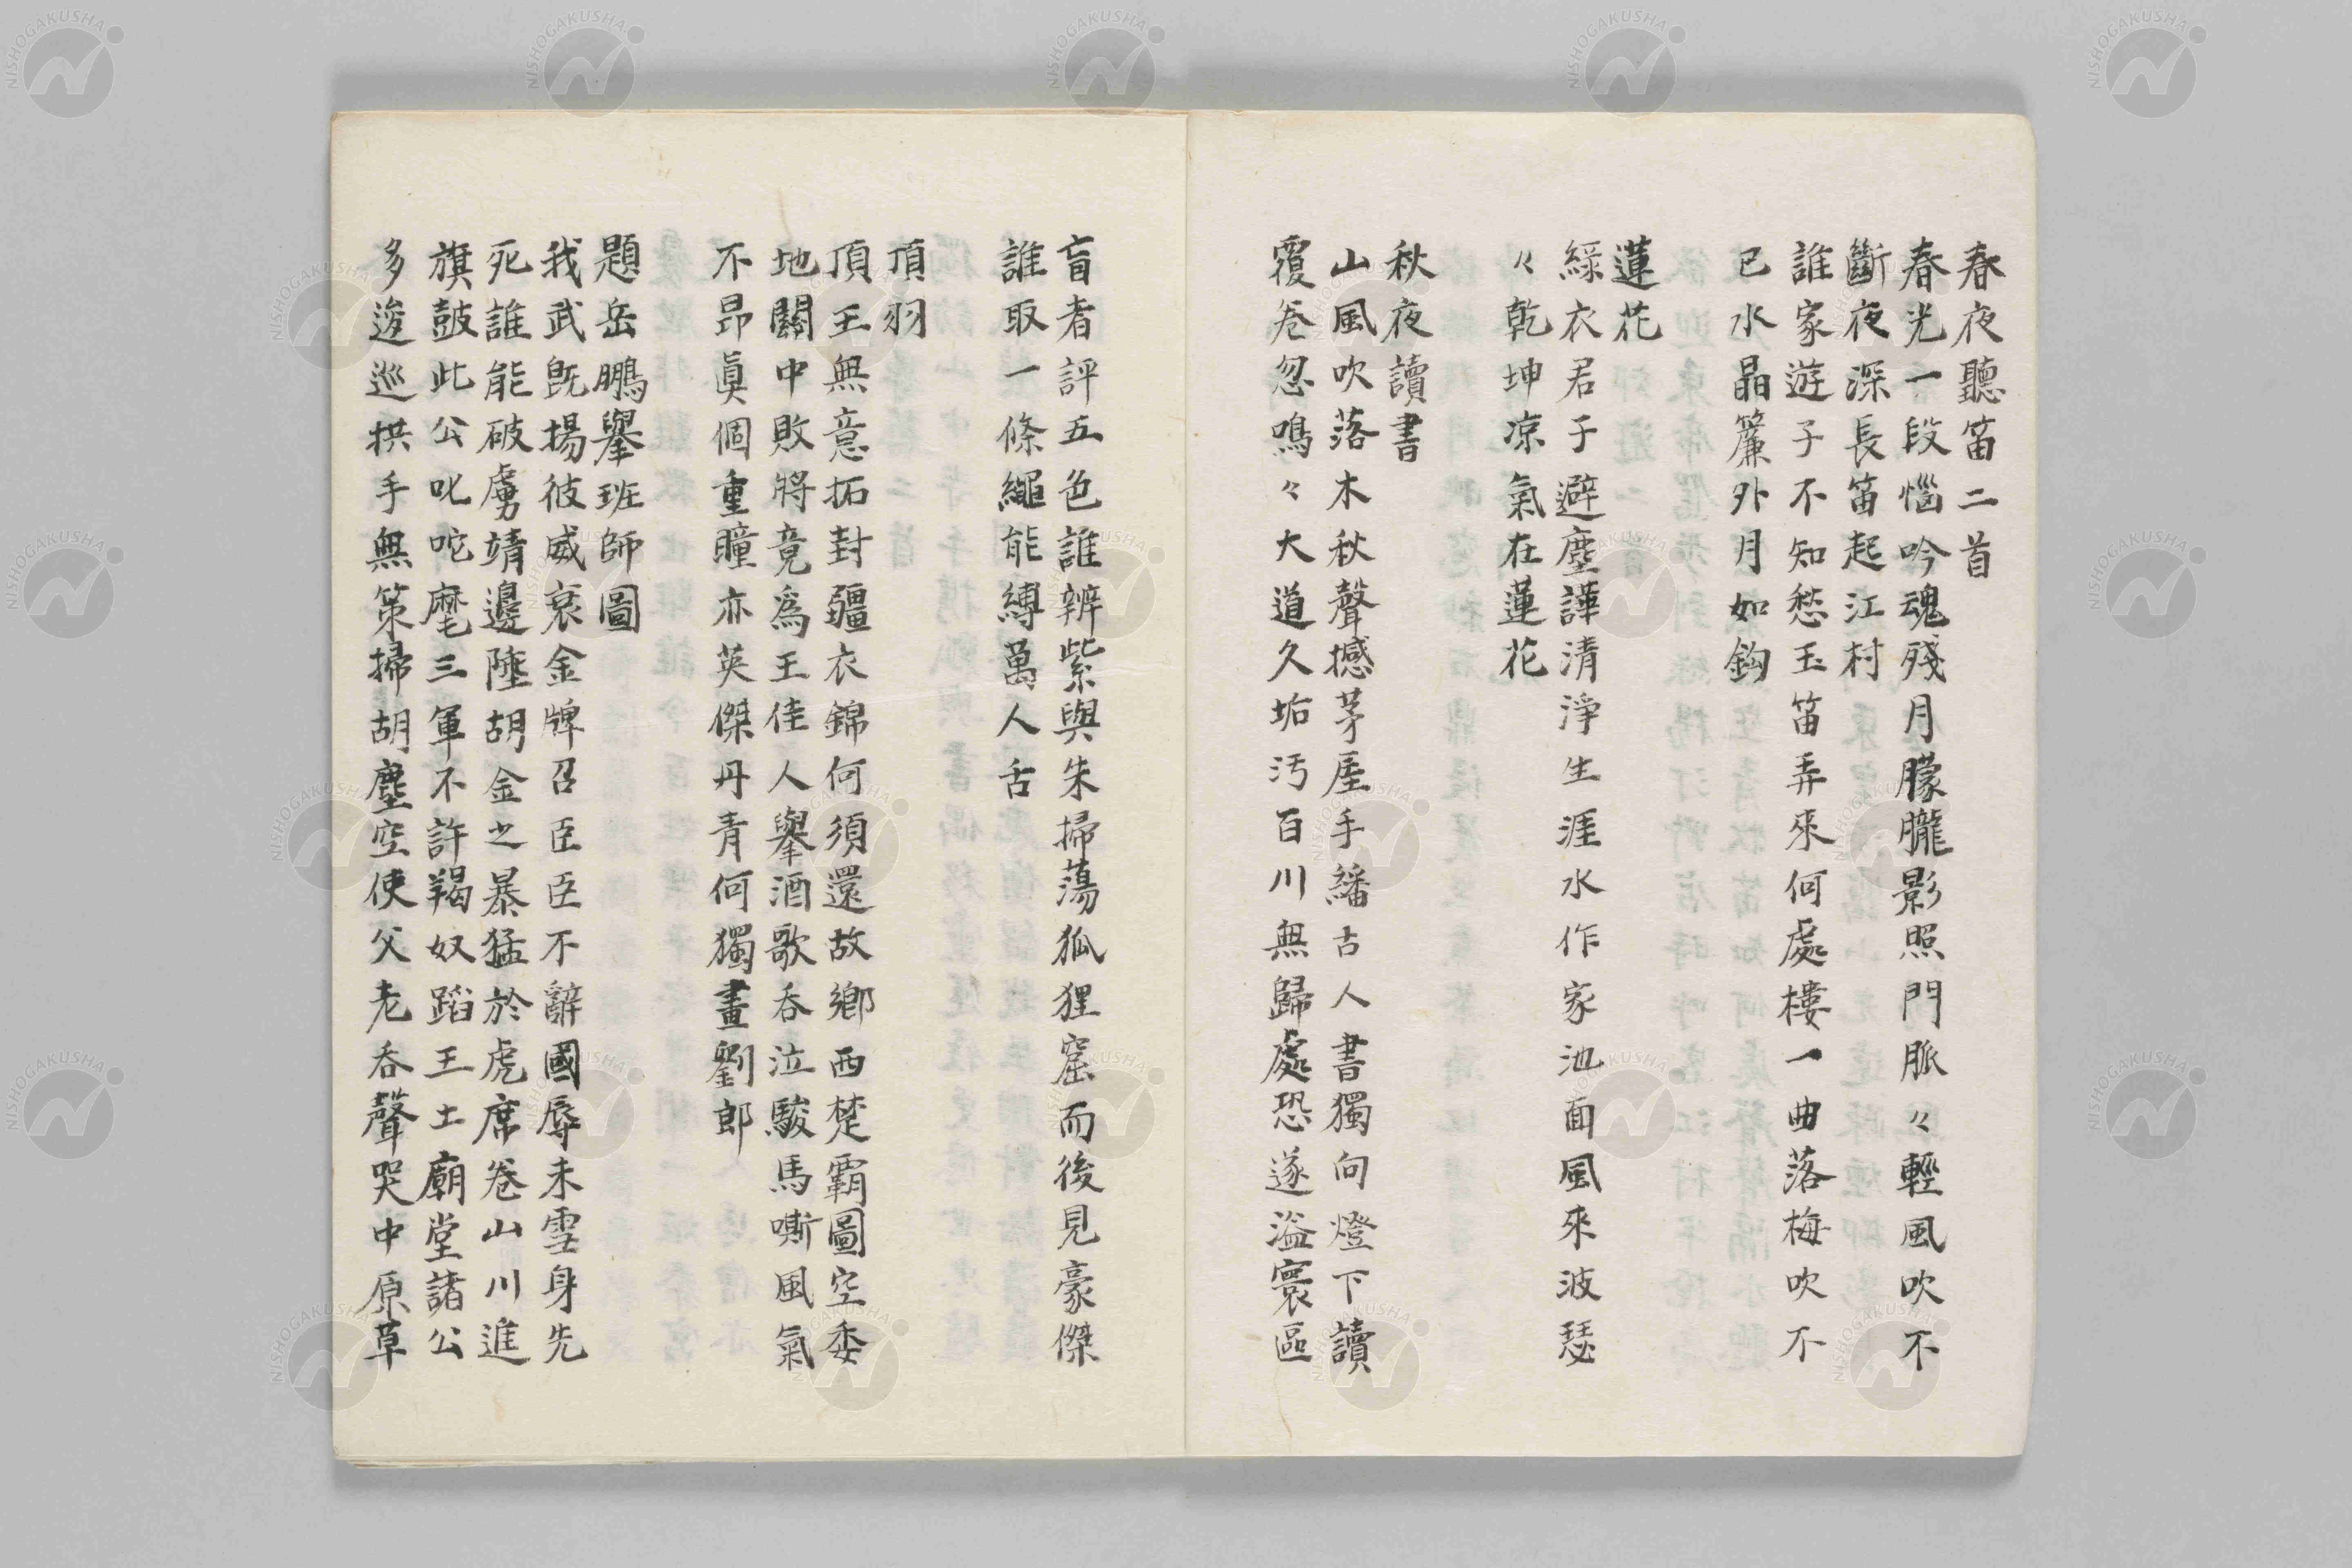 春夜聽笛二首
春光一段惱吟魂殘月朦朧影照門脈々輕風吹不
斷夜深長笛起江村
誰家遊子不知愁玉笛弄來何處樓一曲落梅吹不
已水晶簾外月如鈎
蓮花
綠衣君子避塵譁清淨生涯水作家池面風來波瑟
々乾坤凉氣在蓮花
秋夜讀書
山風吹落木秋聲撼茅屋手繙古人書獨向燈下讀
覆卷忽鳴々大道久垢汚百川無歸處恐遂溢寰區
盲者評五色誰辨紫與朱掃蕩狐狸窟而後見豪傑
誰取一條繩能縛萬人舌
頂羽
頂王無意拓封疆衣錦何須還故鄉西楚霸圖空委
地關中敗將竟爲王佳人擧酒歌呑泣駿馬嘶風氣
不昂眞個重瞳亦英傑丹青何獨畫劉郎
題岳鵬擧班師圖
我武既揚彼威衰金牌召臣臣不辭國辱未雪身先
死誰能破虜靖邊陲胡金之暴猛於虎席卷山川進
旗鼓此公叱咜麾三軍不許羯奴蹈王土廟堂諸公
多逡巡拱手無策掃胡塵空使父老呑聲哭中原草
NISHOGAKUSHA